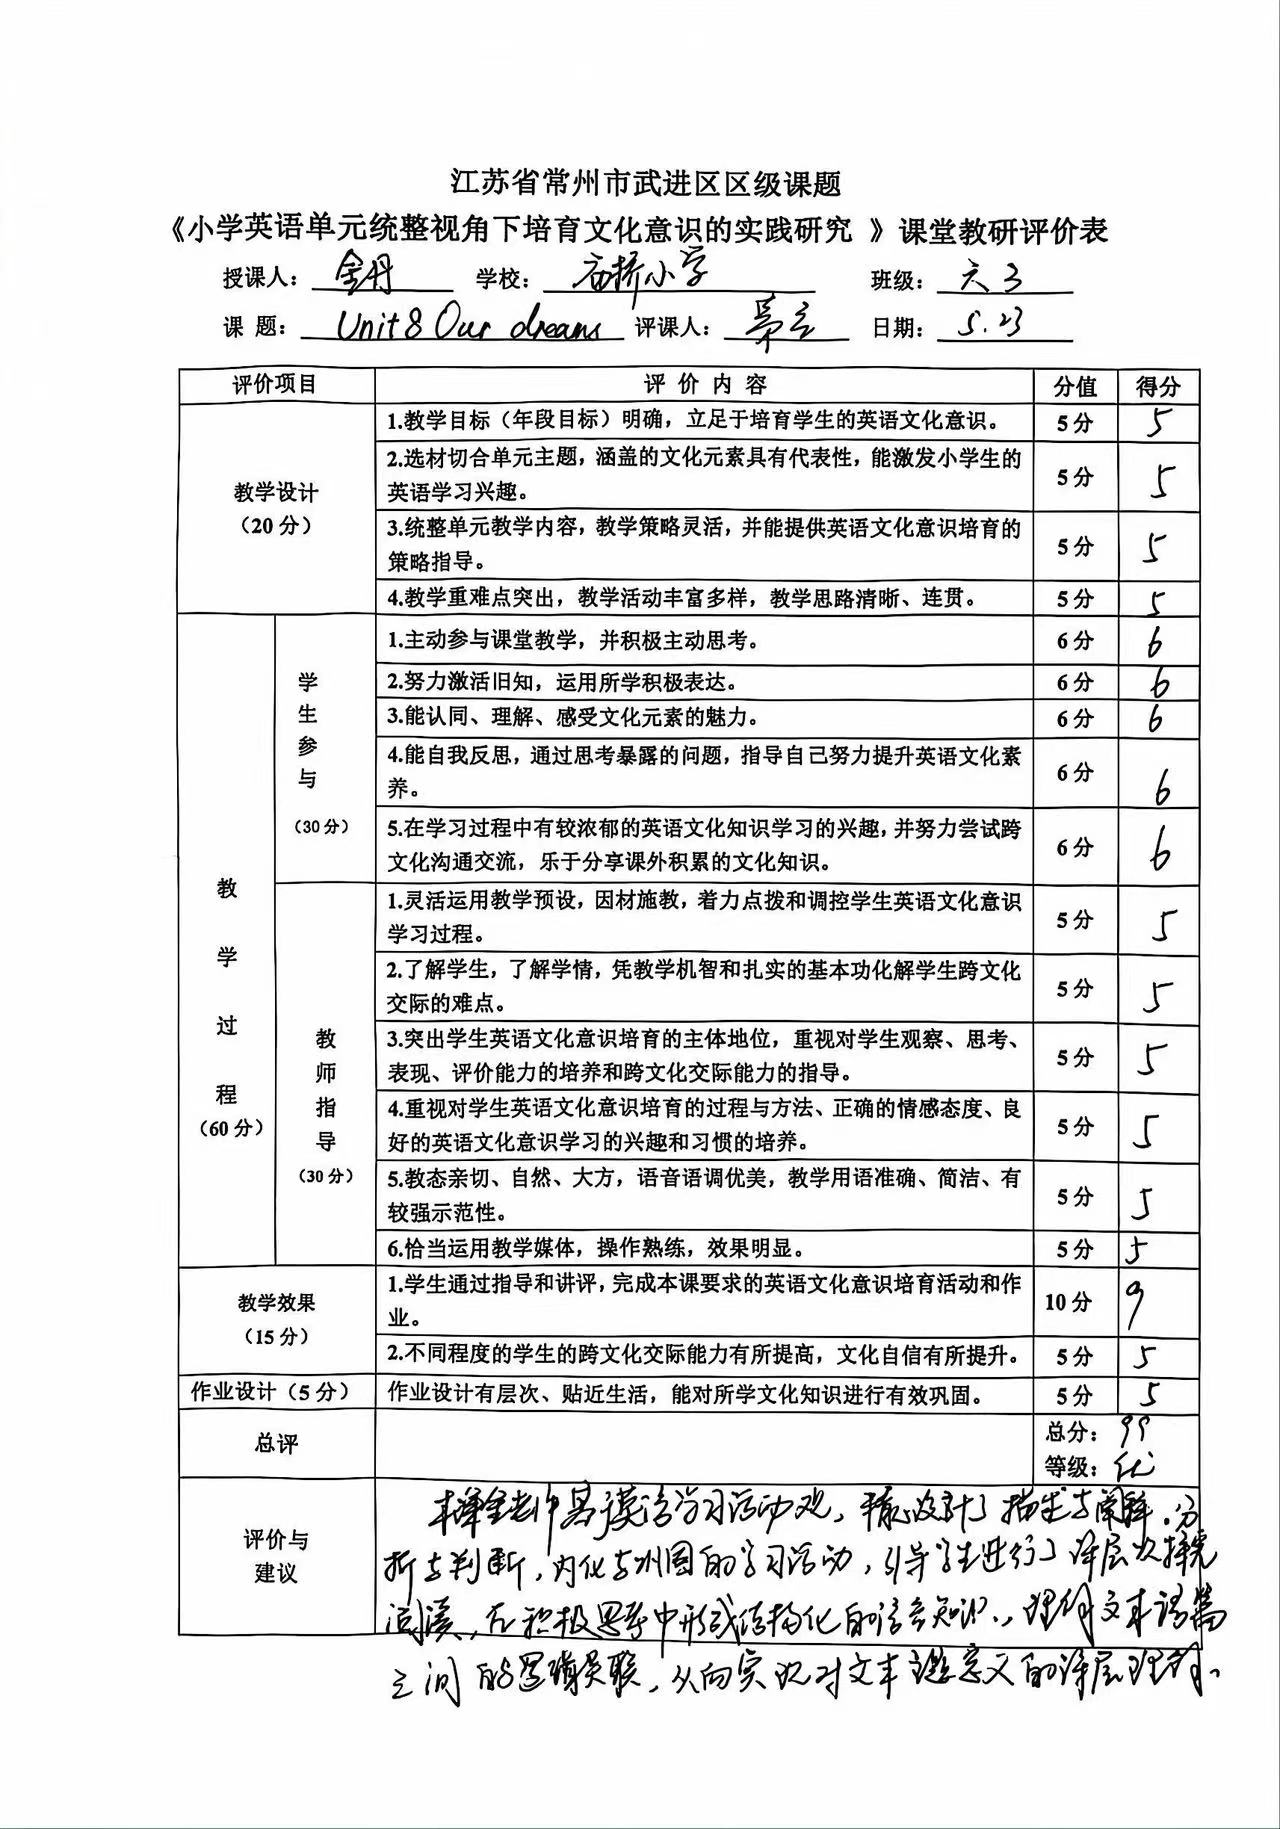 江苏省常州市武进区区级课题
《小学英语单元统整视角下培育文化意识的实践研究 》课堂教研评价表
授课人：金丹 学校：庙桥小学 班级：六3
课 题：Unit8 Our dreams 评课人： 日期：5.23
评价项目 评 价 内 容 分值 得分
教学设计
（20 分）
1.教学目标（年段目标）明确，立足于培育学生的英语文化意识。 5 分 5
2.选材切合单元主题，涵盖的文化元素具有代表性，能激发小学生的
英语学习兴趣。 5 分 5
3.统整单元教学内容，教学策略灵活，并能提供英语文化意识培育的
策略指导。 5 分 5
4.教学重难点突出，教学活动丰富多样，教学思路清晰、连贯。 5 分 5
教学过程
（60 分）
学生参与
（30 分）
1.主动参与课堂教学，并积极主动思考。 6 分 6
2.努力激活旧知，运用所学积极表达。 6 分 6
3.能认同、理解、感受文化元素的魅力。 6 分 6
4.能自我反思，通过思考暴露的问题，指导自己努力提升英语文化素
养。 6 分 6
5.在学习过程中有较浓郁的英语文化知识学习的兴趣，并努力尝试跨
文化沟通交流，乐于分享课外积累的文化知识。 6 分 6
教师指导
（30 分）
1.灵活运用教学预设，因材施教，着力点拨和调控学生英语文化意识
学习过程。 5 分 5
2.了解学生，了解学情，凭教学机智和扎实的基本功化解学生跨文化
交际的难点。 5 分 5
3.突出学生英语文化意识培育的主体地位，重视对学生观察、思考、
表现、评价能力的培养和跨文化交际能力的指导。 5 分 5
4.重视对学生英语文化意识培育的过程与方法、正确的情感态度、良
好的英语文化意识学习的兴趣和习惯的培养。 5 分 5
5.教态亲切、自然、大方，语音语调优美，教学用语准确、简洁、有
较强示范性。 5 分 5
6.恰当运用教学媒体，操作熟练，效果明显。 5 分 5
教学效果
（15 分）
1.学生通过指导和讲评，完成本课要求的英语文化意识培育活动和作
业。 10 分 9
2.不同程度的学生的跨文化交际能力有所提高，文化自信有所提升。 5 分 5
作业设计（5 分） 作业设计有层次、贴近生活，能对所学文化知识进行有效巩固。 5 分 5
总评 总分：99
等级：优
评价与
建议
本课金老师基于英语学习活动观，精心设计了描述与阐释、分
析与判断，内化与巩固的学习活动，引导学生进行了深层次探究
阅读，在积极思考中形成结构化的语言知识，理解文本语篇
之间的逻辑关联，从而实现对文本主题意义的深层理解。